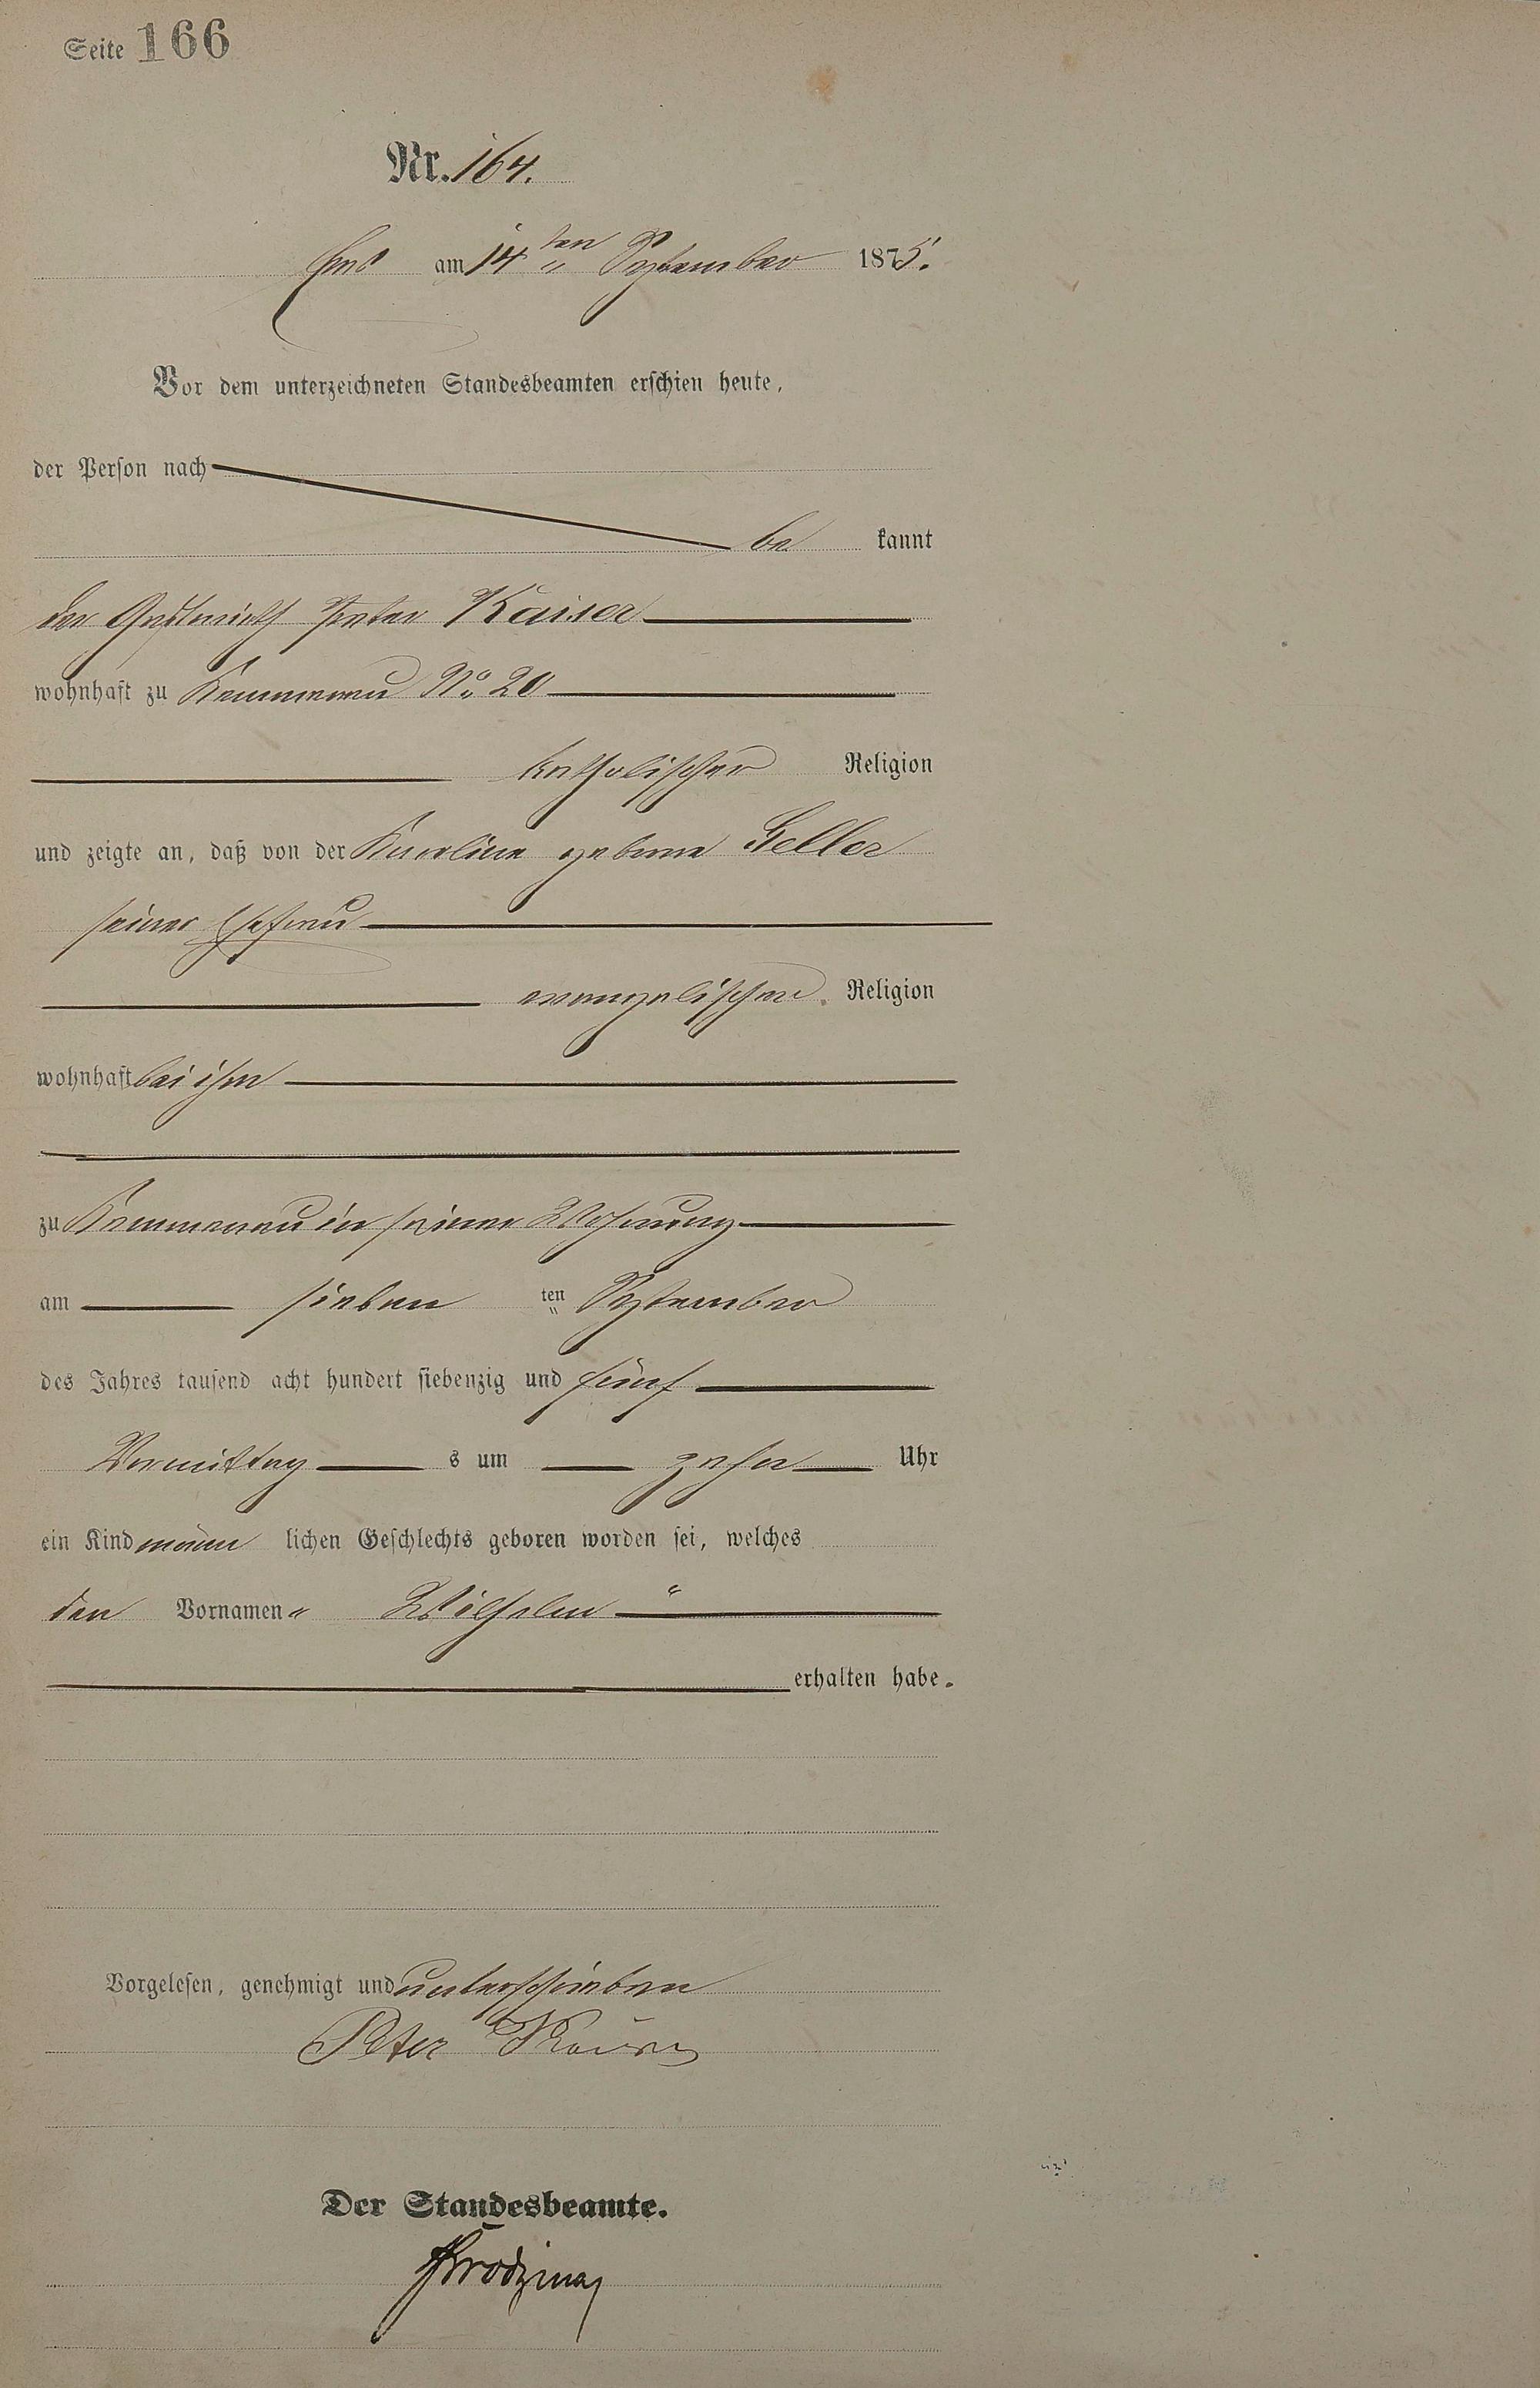 Seite 166
Nr. 164.
Ems am 14ten September 1875.
Vor dem unterzeichneten Standesbeamten erschien heute,
der Person nach
be kannt
der Gastwirth Peter Kaiser
wohnhaft zu Kemmenau No 20
katholischer Religion
und zeigte an, daß von der Karoline geborne Geller
seiner Ehefrau
evangelischer Religion
wohnhaft bei ihm
zu Kemmenau in seiner Wohnung
am sieben ten September
des Jahres tausend acht hundert siebenzig und fünf
Vormittag s um zehn Uhr
ein Kind männ lichen Geschlechts geboren worden sei, welches
den Vornamen „ Wilhelm “
erhalten habe.
Vorgelesen, genehmigt und unterschrieben
Peter Kaiser
Der Standesbeamte.